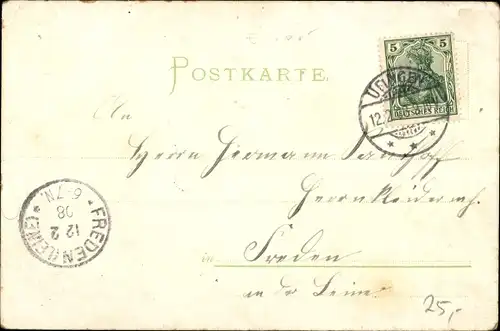 POSTKARTE.
5 5
DEUTSCHES REICH
12.2
An
Herrn Hermann
Herrnkleiderm.
in Freden
an der Leine
FREDEN (LEINE)
12 2
08
6-7N.
25,-